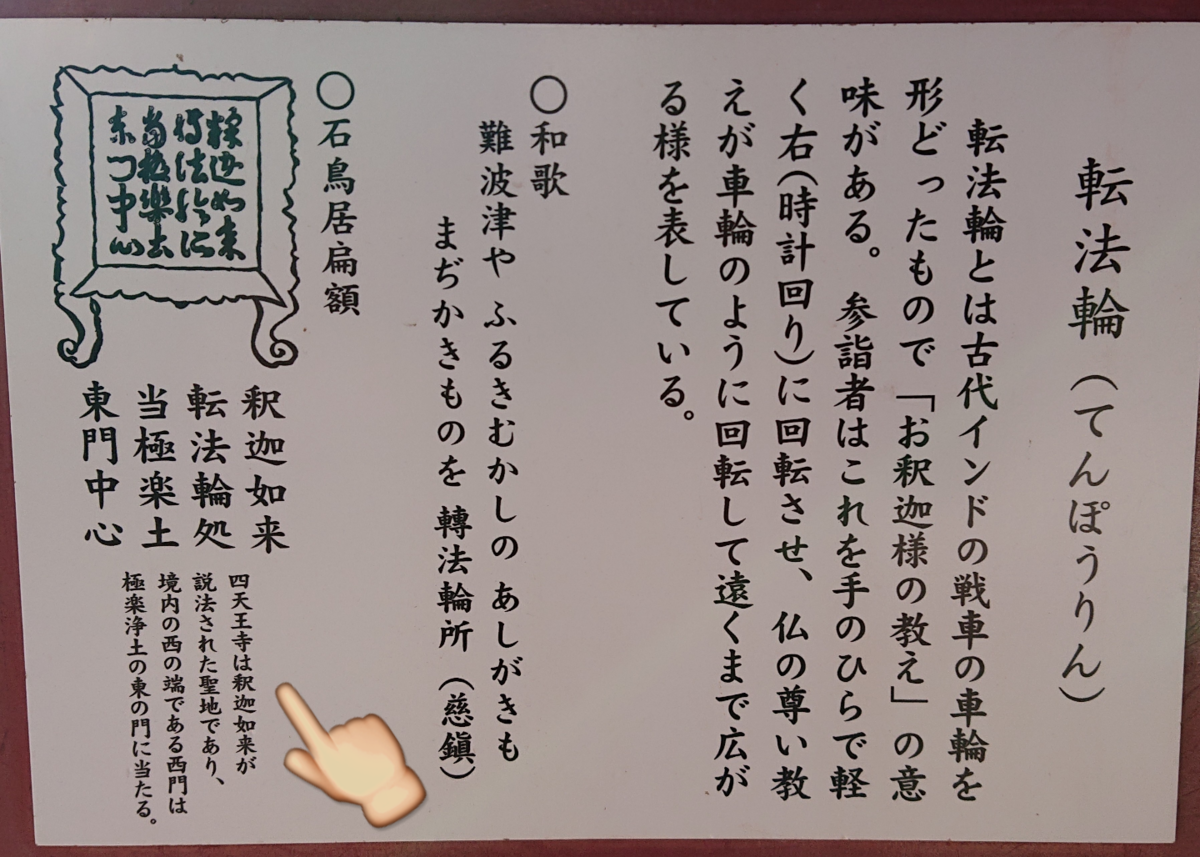 転法輪（てんぽうりん）
転法輪とは古代インドの戦車の車輪を
形どったもので「お釈迦様の教え」の意
味がある。参詣者はこれを手のひらで軽
く右（時計回り）に回転させ、仏の尊い教
えが車輪のように回転して遠くまで広が
る様を表している。
○和歌
難波津や ふるきむかしの あしがきも
まぢかきものを 轉法輪所（慈鎭）
○石鳥居扁額
釈迦如来
転法輪所
当極楽土
東門中心
釈迦如来
転法輪処
当極楽土
東門中心
四天王寺は釈迦如来が
説法された聖地であり、
境内の西の端である西門は
極楽浄土の東の門に当たる。